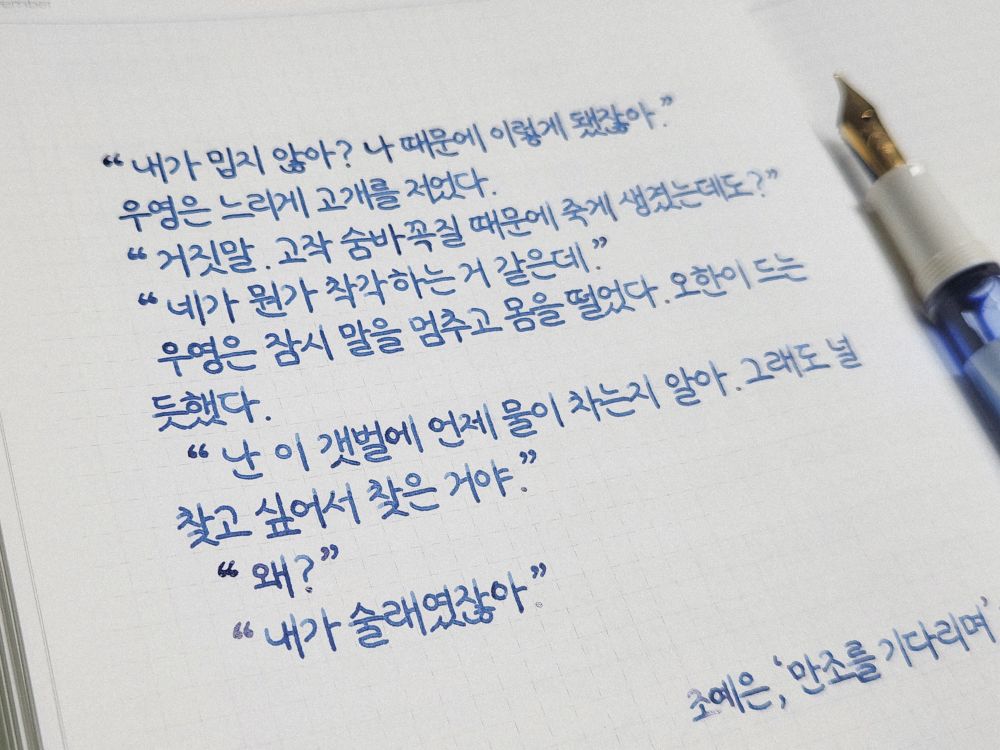 “내가 밉지 않아? 나 때문에 이렇게 됐잖아.”
우영은 느리게 고개를 저었다.
“거짓말. 고작 숨바꼭질 때문에 죽게 생겼는데도?”
“네가 뭔가 착각하는 거 같은데.”
우영은 잠시 말을 멈추고 몸을 떨었다. 오한이 드는
듯했다.
“난 이 갯벌에 언제 물이 차는지 알아. 그래도 널
찾고 싶어서 찾은 거야.”
“왜?”
“내가 술래였잖아.”
조예은, ‘만조를 기다리며’